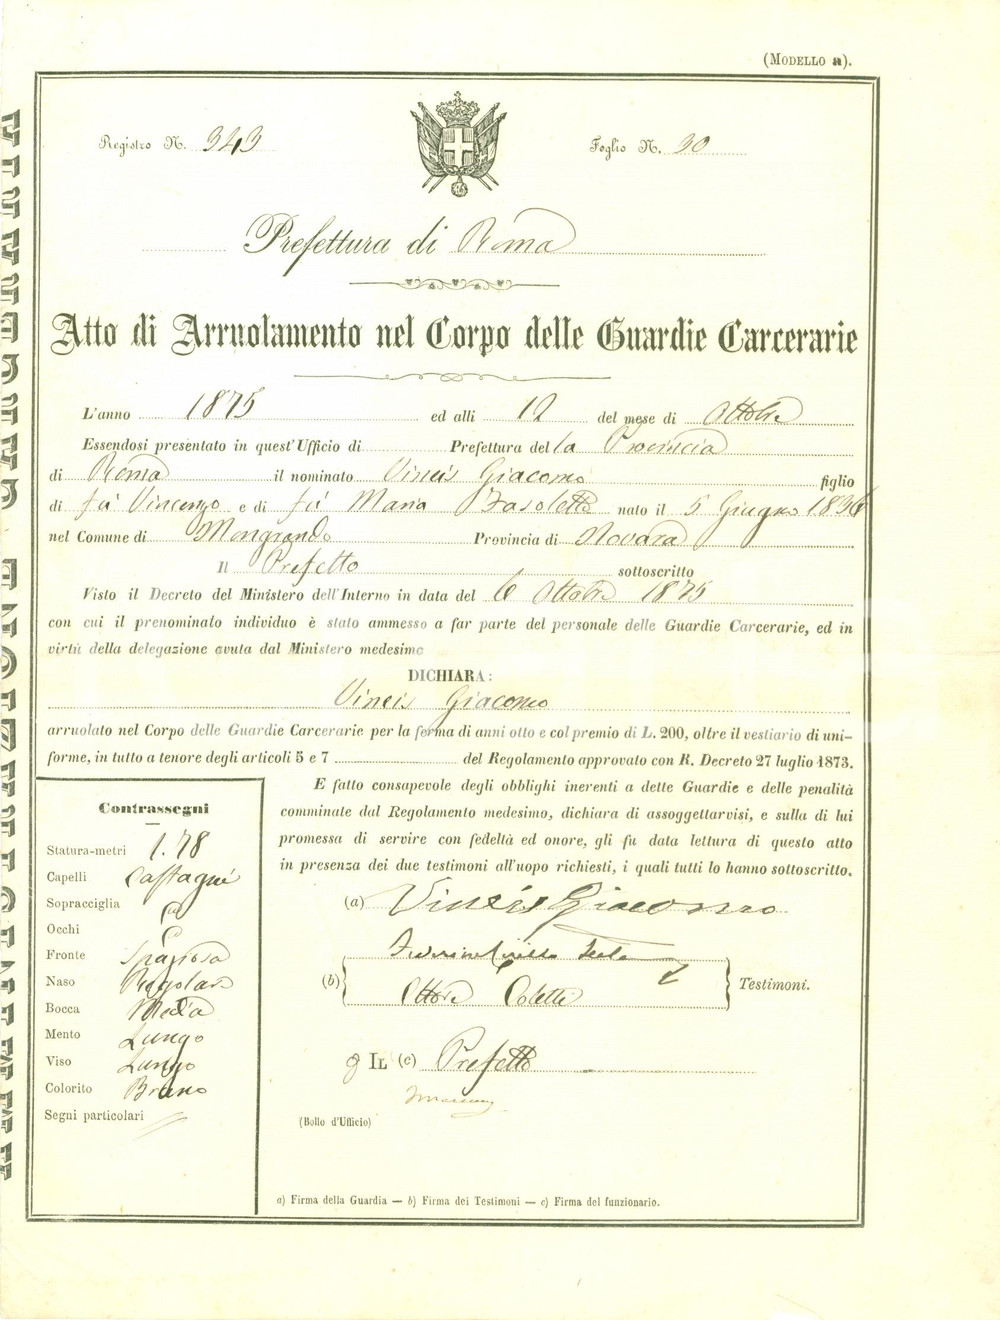 (Modello a).
Registro N. 343
Foglio N. 30
Prefettura di Roma
Atto di Arruolamento nel Corpo delle Guardie Carcerarie
L'anno 1875 ed alli 12 del mese di Ottobre
Essendosi presentato in quest'Ufficio di Prefettura della Provincia
di Roma il nominato Vineis Giacomo figlio
di fu Vincenzo e di fu Maria nato il 5 Giugno 1836
nel Comune di Mongrando Provincia di Novara
Il Prefetto sottoscritto
Visto il Decreto del Ministero dell'Interno in data del 6 Ottobre 1875
con cui il prenominato individuo è stato ammesso a far parte del personale delle Guardie Carcerarie, ed in
virtù della delegazione avuta dal Ministero medesimo
DICHIARA:
Vineis Giacomo
arruolato nel Corpo delle Guardie Carcerarie per la ferma di anni otto e col premio di L. 200, oltre il vestiario di uni-
forme, in tutto a tenore degli articoli 5 e 7 del Regolamento approvato con R. Decreto 27 luglio 1873.
E fatto consapevole degli obblighi inerenti a dette Guardie e delle penalità
comminate dal Regolamento medesimo, dichiara di assoggettarvisi, e sulla di lui
promessa di servire con fedeltà ed onore, gli fu data lettura di questo atto
in presenza dei due testimoni all'uopo richiesti, i quali tutti lo hanno sottoscritto.
(a) Vineis Giacomo
(b)
Ettore Coletti
Testimoni.
Il (c) Prefetto
(Bollo d'Ufficio)
a) Firma della Guardia — b) Firma dei Testimoni — c) Firma del funzionario.
Contrassegni
Statura-metri 1.78
Capelli Castagni
Sopracciglia
Occhi
Fronte Spaziosa
Naso Regolare
Bocca Media
Mento Lungo
Viso Lungo
Colorito Bruno
Segni particolari